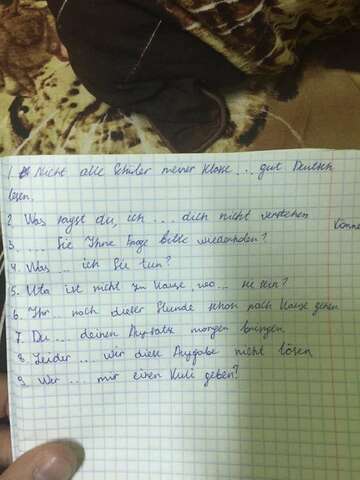 1. Nicht alle Schüler meiner Klasse ... gut Deutsch
lesen.
2. Was sagst du, ich ... dich nicht verstehen
3. ... Sie Ihre Frage bitte wiederholen?
4. Was ... ich Sie tun?
5. Uta ist nicht zu Hause, wo ... sie sein?
6. Ihr .. nach dieser Stunde schon nach Hause gehen
7. Du ... deinen Aufsatz morgen bringen
8. Leider ... wir diese Aufgabe nicht lösen
9. Wer ... mir einen Kuli geben?